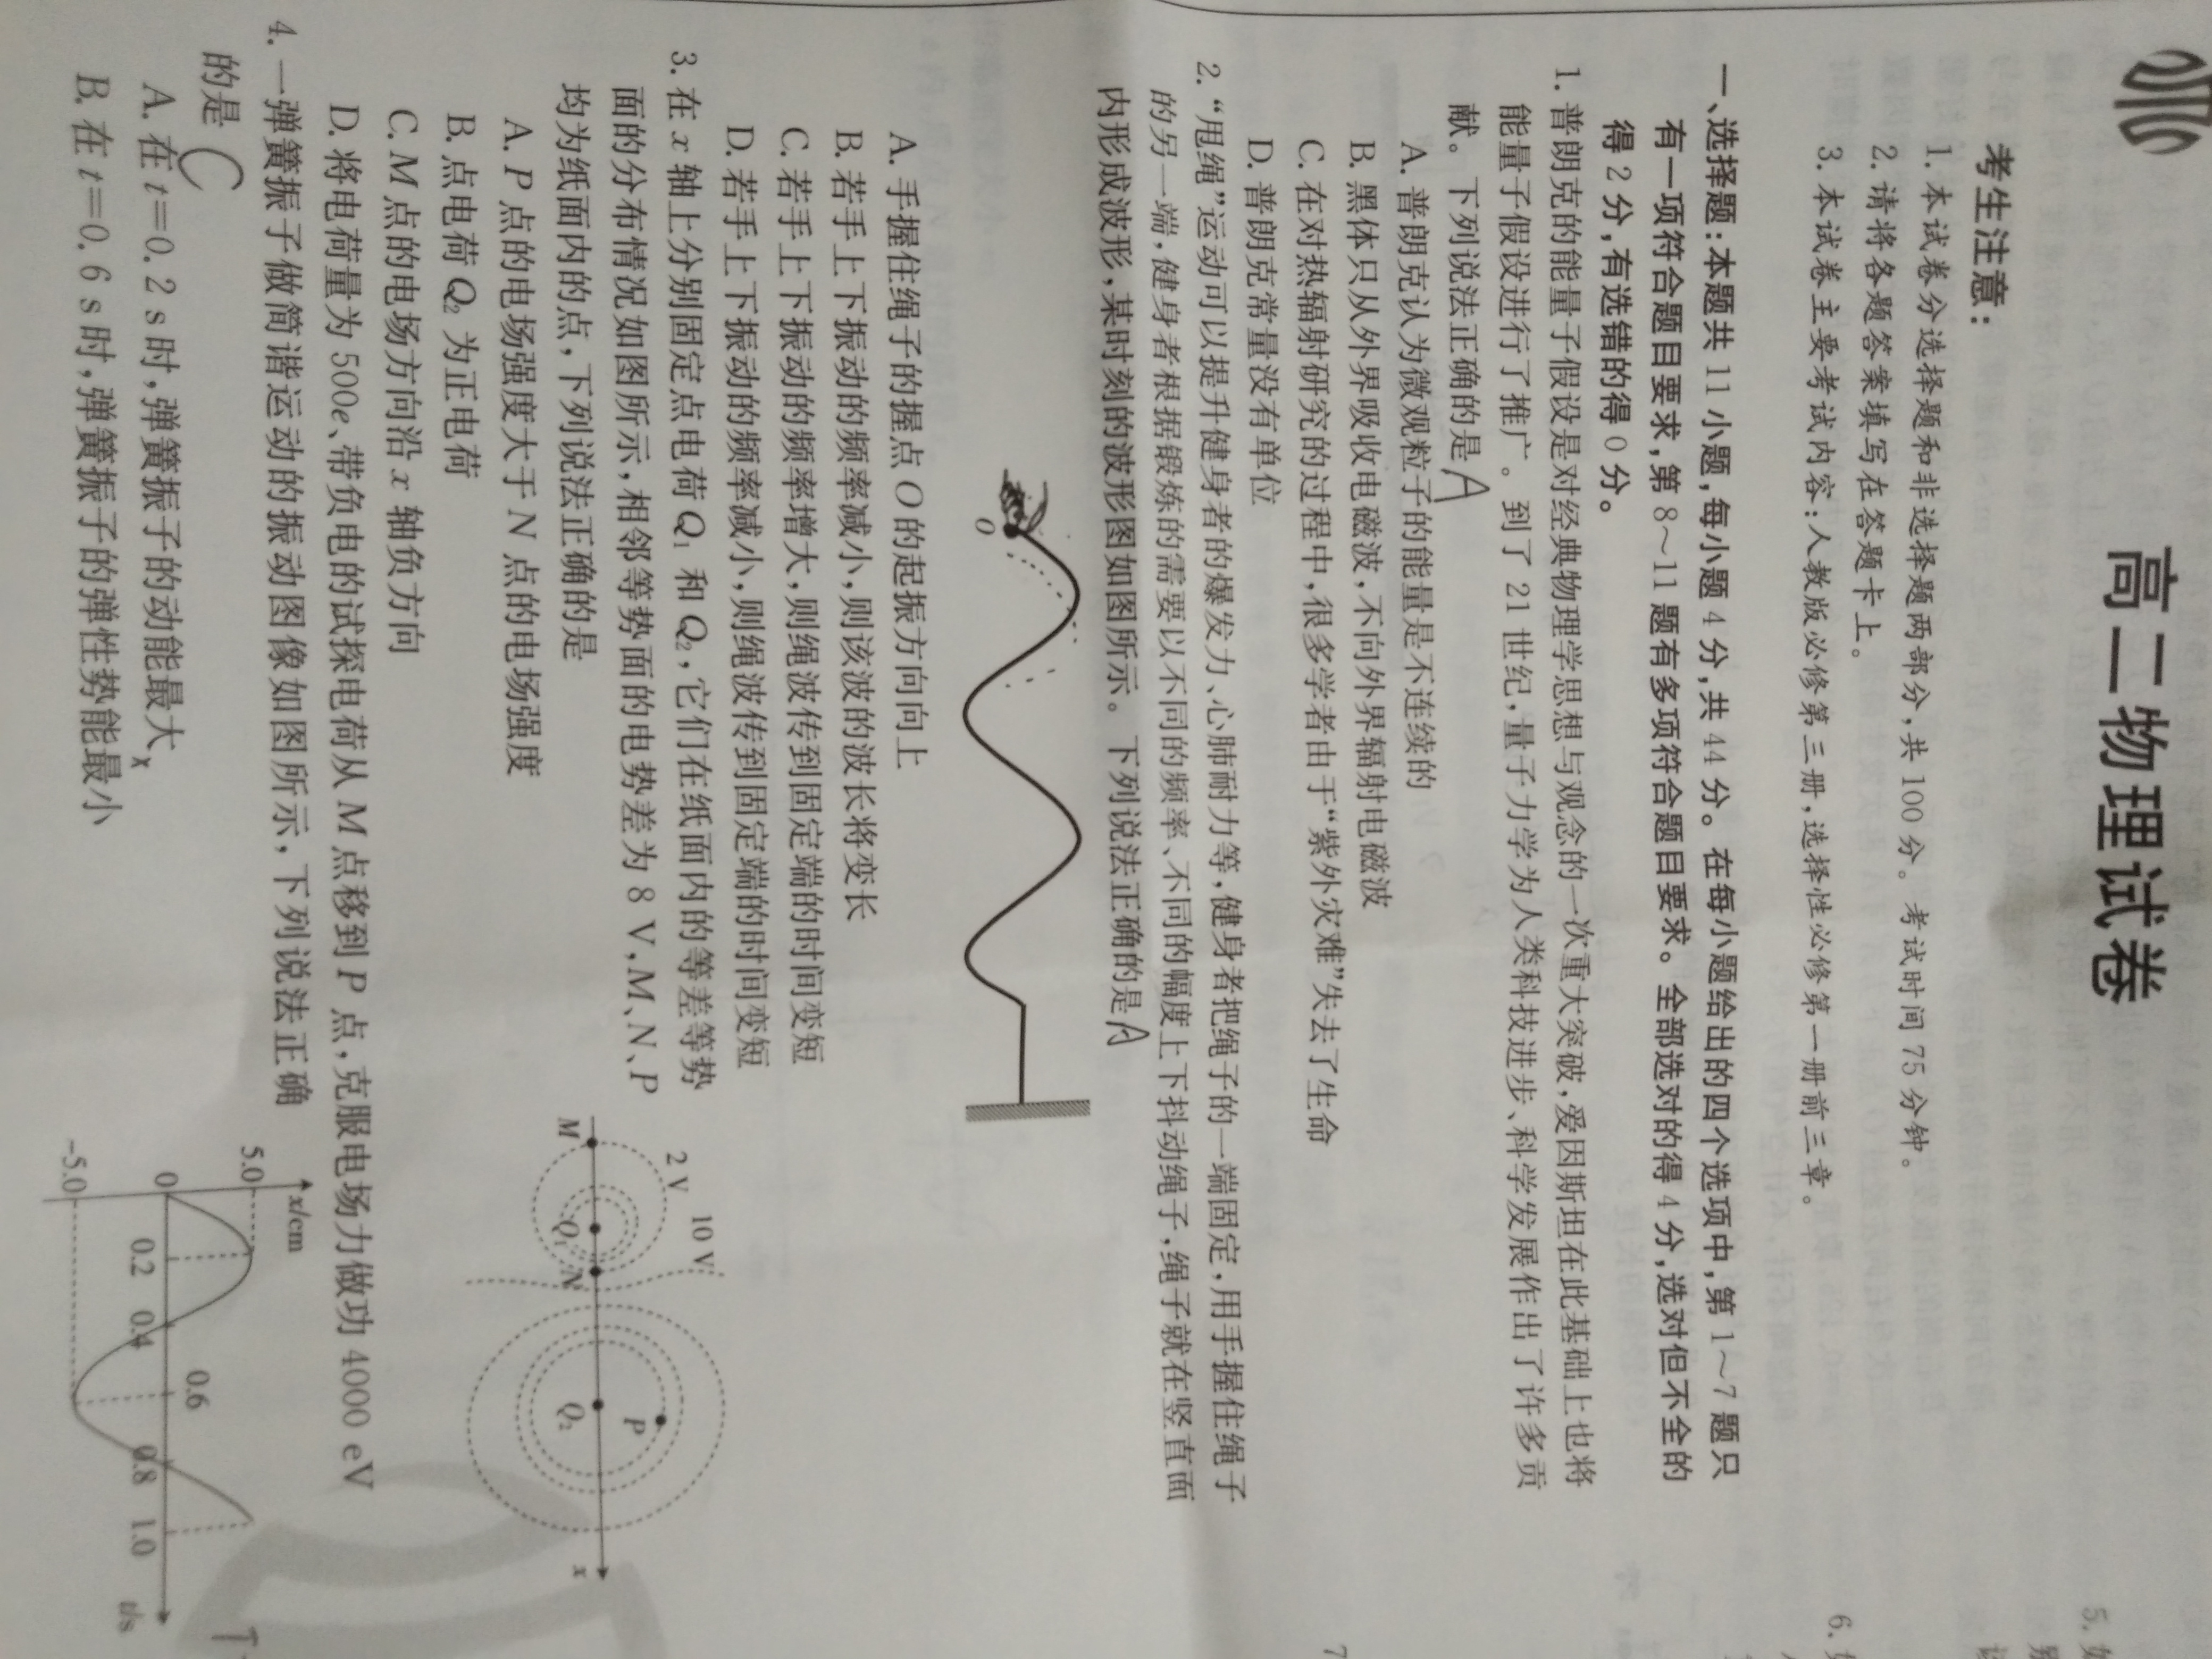 高二物理试卷
考生注意：
1. 本试卷分选择题和非选择题两部分，共 100 分。考试时间 75 分钟。
2. 请将各题答案填写在答题卡上。
3. 本试卷主要考试内容：人教版必修第三册，选择性必修第一册前三章。
一、选择题：本题共 11 小题，每小题 4 分，共 44 分。在每小题给出的四个选项中，第 1～7 题只
有一项符合题目要求，第 8～11 题有多项符合题目要求。全部选对的得 4 分，选对但不全的
得 2 分，有选错的得 0 分。
1. 普朗克的能量子假设是对经典物理学思想与观念的一次重大突破，爱因斯坦在此基础上也将
能量子假设进行了推广。到了 21 世纪，量子力学为人类科技进步、科学发展作出了许多贡
献。下列说法正确的是 A
A. 普朗克认为微观粒子的能量是不连续的
B. 黑体只从外界吸收电磁波，不向外界辐射电磁波
C. 在对热辐射研究的过程中，很多学者由于“紫外灾难”失去了生命
D. 普朗克常量没有单位
2. “甩绳”运动可以提升健身者的爆发力、心肺耐力等，健身者把绳子的一端固定，用手握住绳子
的另一端，健身者根据锻炼的需要以不同的频率、不同的幅度上下抖动绳子，绳子就在竖直面
内形成波形，某时刻的波形图如图所示。下列说法正确的是 A
O
A. 手握住绳子的握点 O 的起振方向向上
B. 若手上下振动的频率减小，则该波的波长将变长
C. 若手上下振动的频率增大，则绳波传到固定端的时间变短
D. 若手上下振动的频率减小，则绳波传到固定端的时间变短
3. 在 x 轴上分别固定点电荷 Q₁ 和 Q₂，它们在纸面内的等差等势
面的分布情况如图所示，相邻等势面的电势差为 8 V，M、N、P
均为纸面内的点，下列说法正确的是
A. P 点的电场强度大于 N 点的电场强度
B. 点电荷 Q₂ 为正电荷
C. M 点的电场方向沿 x 轴负方向
D. 将电荷量为 500e、带负电的试探电荷从 M 点移到 P 点，克服电场力做功 4000 eV
2 V
10 V
M
Q₁
N
Q₂
P
x
4. 一弹簧振子做简谐运动的振动图像如图所示，下列说法正确
的是 C
A. 在 t=0.2 s 时，弹簧振子的动能最大 x
B. 在 t=0.6 s 时，弹簧振子的弹性势能最小
x/cm
5.0
0
-5.0
0.2
0.4
0.6
0.8
1.0
t/s
T
5.
6.
7